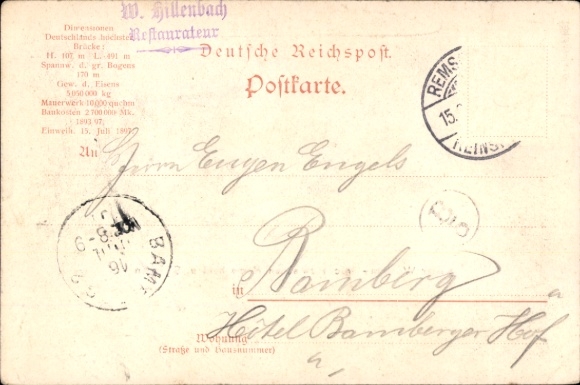 W. Hillenbach
Restaurateur
Dimensionen
Deutschlands höchster
Brücke:
H. 107 m L. 491 m
Spannw. d. gr. Bogens
170 m
Gew. d. Eisens
5 050 000 kg
Mauerwerk 10 000 qucbm
Baukosten 2 700 000 Mk.
1893/97.
Einweih. 15. Juli 1897
Deutsche Reichspost.
Postkarte.
REMS
15.
REINSH
An Herrn Eugen Engels
BAMB
8-9
in Bamberg
Hôtel Bamberger Hof
Wohnung
(Straße und Hausnummer)